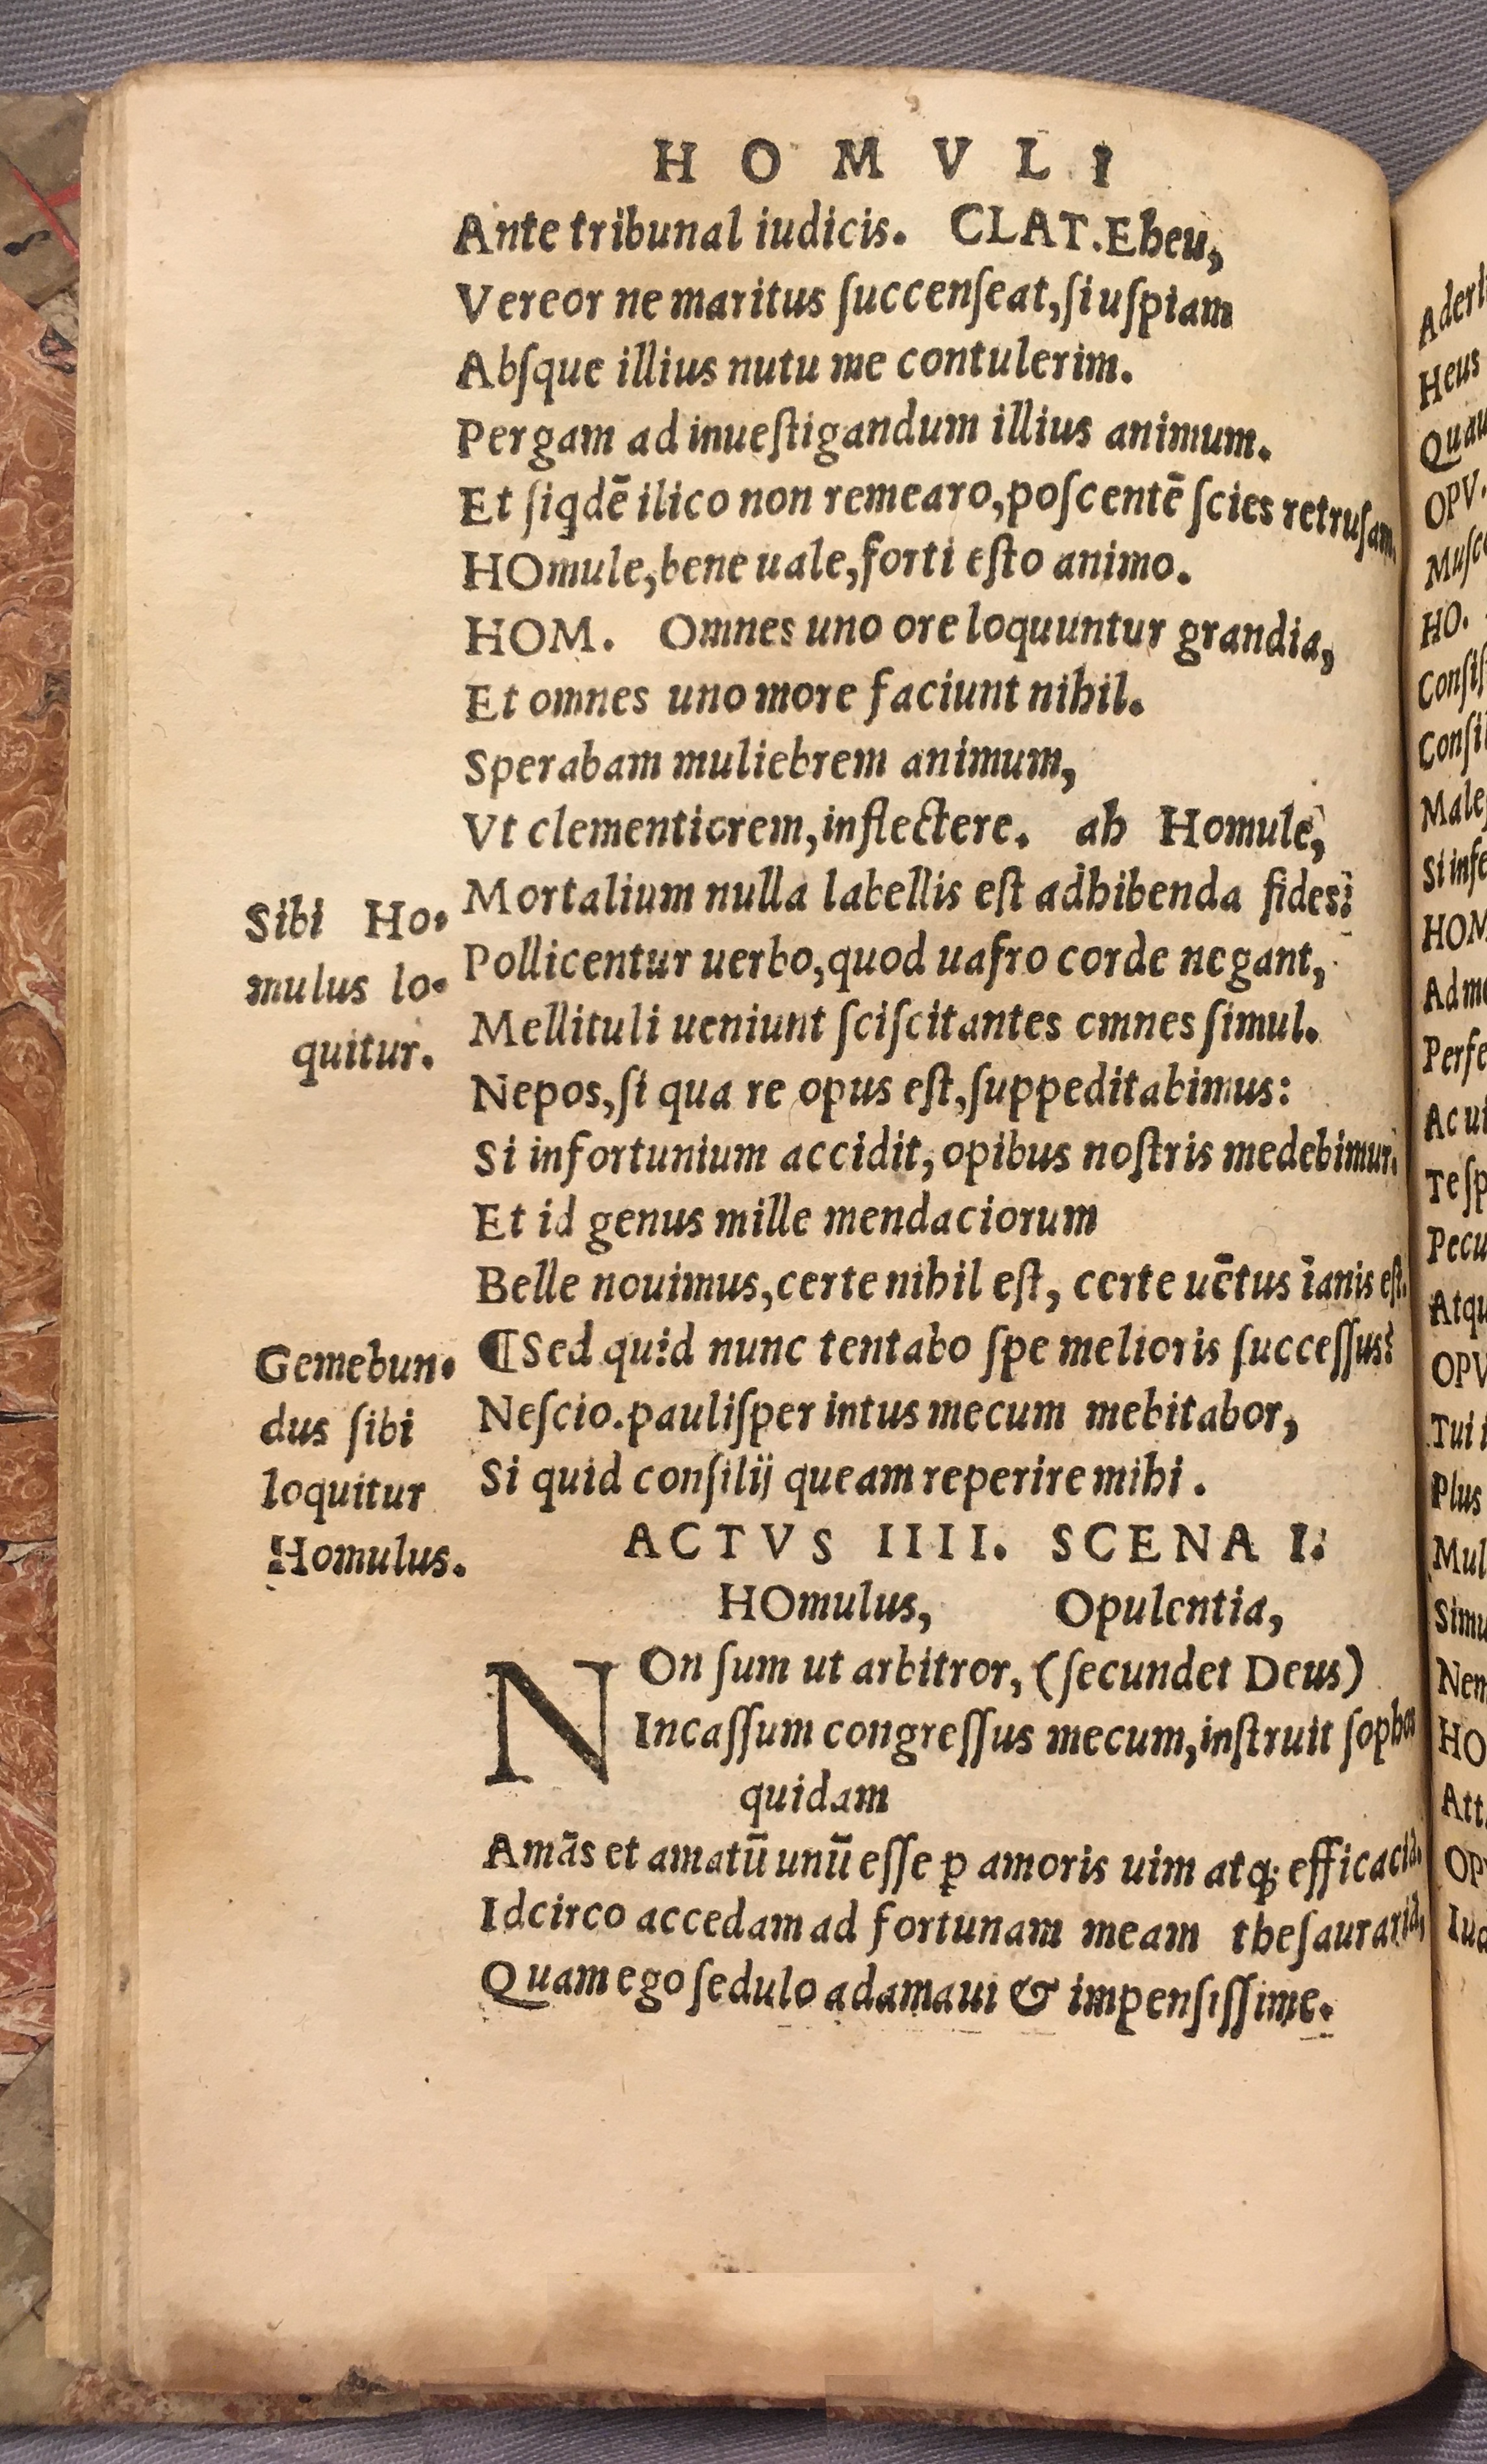 HOMVLI
Ante tribunal iudicis. CLAT. Eheu,
Vereor ne maritus ſuccenſeat, ſi uſpiam
Abſque illius nutu me contulerim.
Pergam ad inueſtigandum illius animum.
Et ſiqdē ilico non remearo, poſcentē ſcies retruſam.
HOmule, bene uale, forti eſto animo.
HOM. Omnes uno ore loquuntur grandia,
Et omnes uno more faciunt nihil.
Sperabam muliebrem animum,
Vt clementiorem, inflectere. ah Homule,
Mortalium nulla labellis eſt adhibenda fides:
Pollicentur uerbo, quod uafro corde negant,
Mellituli ueniunt ſciſcitantes omnes ſimul.
Nepos, ſi qua re opus eſt, ſuppeditabimus:
Si infortunium accidit, opibus noſtris medebimur.
Et id genus mille mendaciorum
Belle nouimus, certe nihil eſt, certe uētus īanis eſt.
¶ Sed quid nunc tentabo ſpe melioris ſucceſſus?
Neſcio. pauliſper intus mecum mebitabor,
Si quid conſilij queam reperire mihi.
Sibi Ho-
mulus lo-
quitur.
Gemebun-
dus ſibi
loquitur
Homulus.
ACTVS IIII. SCENA I.
HOmulus, Opulentia,
NOn ſum ut arbitror, (ſecundet Deus)
Incaſſum congreſſus mecum, inſtruit ſophos
quidam
Amās et amatū unū eſſe ꝑ amoris uim atq; efficaciā.
Idcirco accedam ad fortunam meam theſaurariā,
Quam ego ſedulo adamaui & impenſiſſime.
Heus
OPV.
HO.
HOM
Perfe
Ac ui
OPV
Tui
Plus
HO